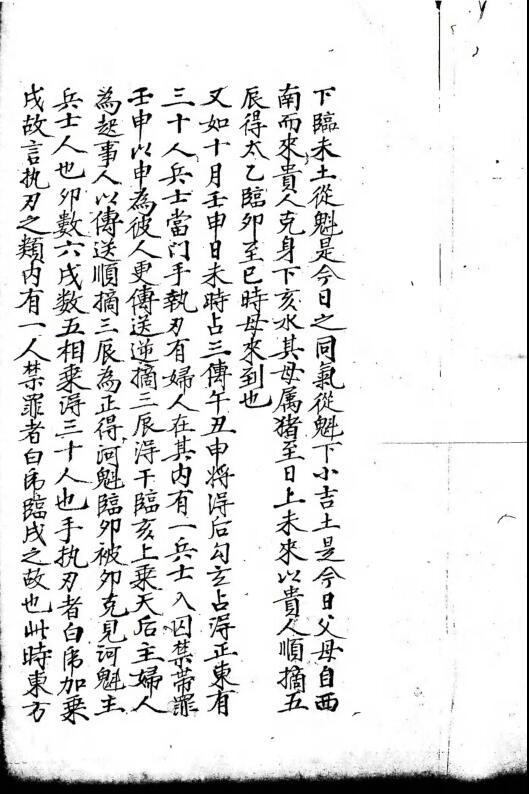 下臨未土從魁是今日之同氣從魁下小吉土是今日父母自西
南而來貴人克身下亥水其母属猪至日上未來以貴人順摘五
辰得太乙臨卯至巳時母來到也
又如十月壬申日未時占三傳午丑申将得后勾玄占得正東有
三十人兵士當门手執刃有婦人在其内有一兵士入囚禁帶罪
壬申以申為彼人更傳送逆摘三辰得干臨亥上乗天后主婦人
為起事人以傳送順摘三辰為正得河魁臨卯被卯克見河魁主
兵士人也卯數六戌数五相乗得三十人也手执刃者白虎加乗
戌故言执刃之類内有一人禁罪者白虎臨戌之故也此時東方